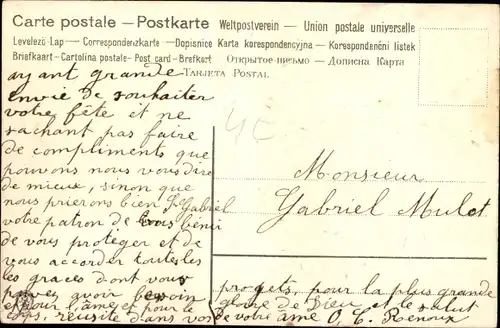 Carte postale – Postkarte Weltpostverein – Union postale universelle
Levelező Lap – Correspondenzkarte – Dopisnice Karta korespondencyjna – Korespondenční listek
Briefkaart – Cartolina postale – Post card – Brefkort Открытое письмо – Дописна Карта
Tarjeta Postal
ayant grande
envie de souhaiter
votre fête et ne
sachant pas faire
de compliments que
pouvons nous vous dire
de mieux, sinon que
nous prierons bien St Gabriel
votre patron de vous bénir
de vous protéger et de
vous accorder toutes les
les graces dont vous
pouvez avoir besoin
et pour l'âme et pour le
corps, réussite dans vos
projets, pour la plus grande
gloire de Dieu et le salut
de votre âme O. C.
4C
Monsieur
Gabriel Mulot